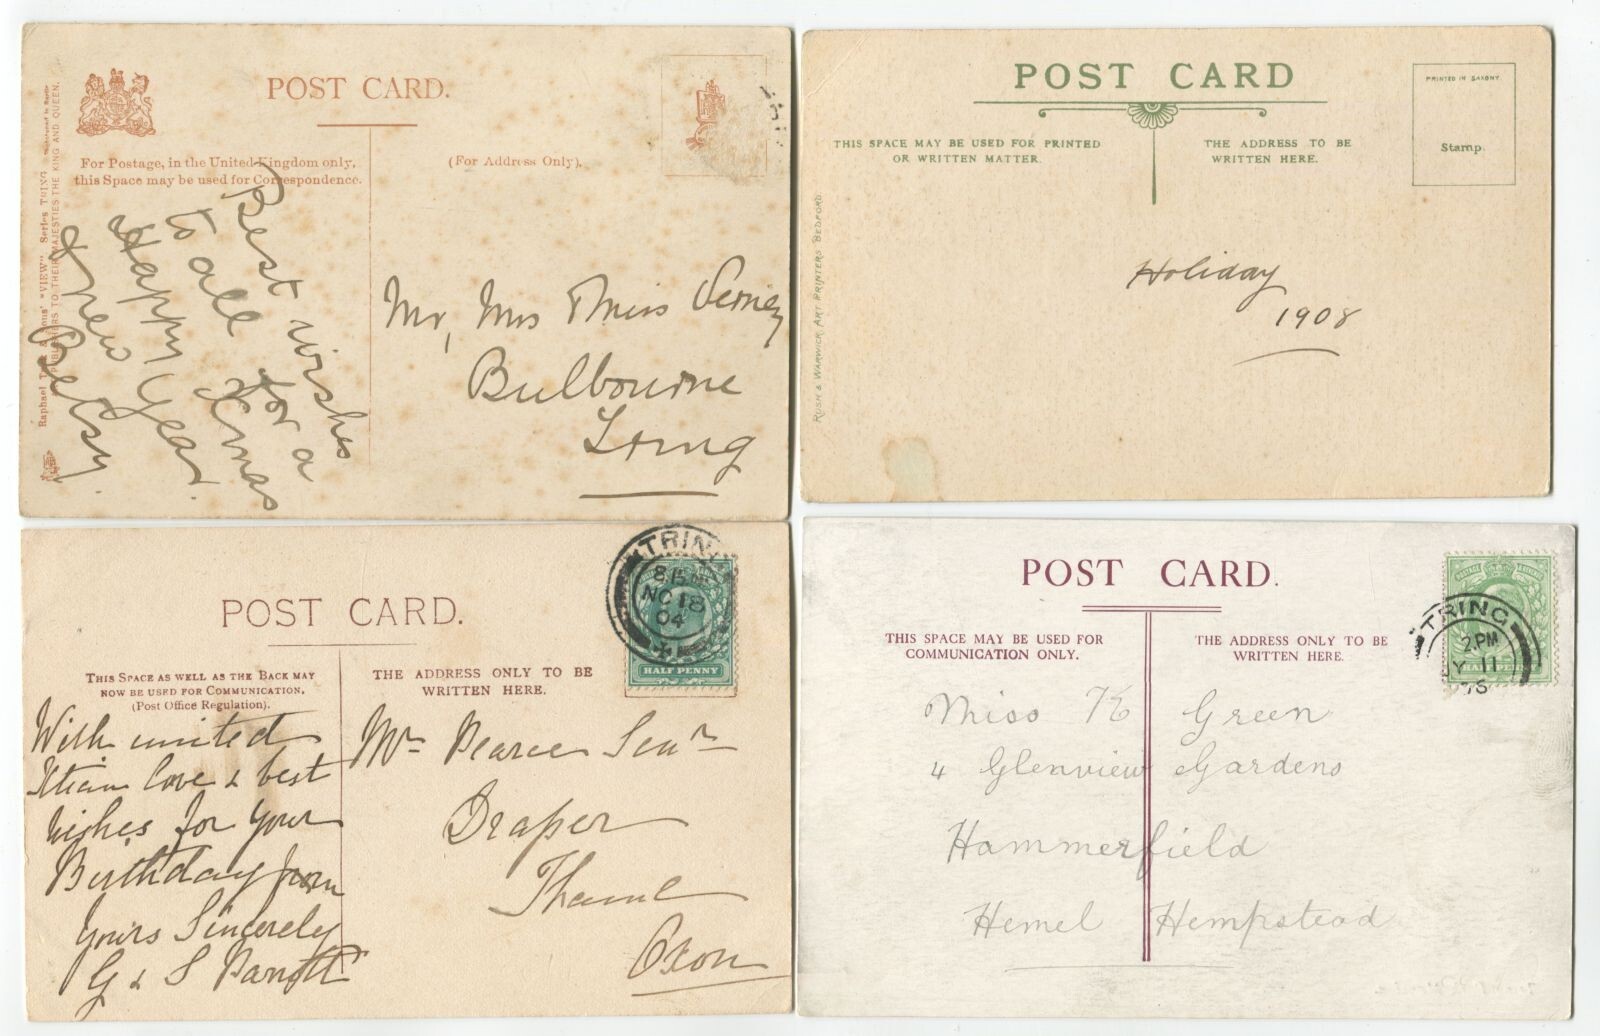 POST CARD.
For Postage, in the United Kingdom only,
this Space may be used for Correspondence.
(For Address Only).
Raphael Tuck & Sons' "VIEW" Series TRING
PUBLISHERS TO THEIR MAJESTIES THE KING AND QUEEN.
Best wishes
to all for a
Happy Xmas
& New Year.
Betsy
Mr, Mrs & Miss
Bulbourne
Tring
POST CARD
THIS SPACE MAY BE USED FOR PRINTED
OR WRITTEN MATTER.
THE ADDRESS TO BE
WRITTEN HERE.
PRINTED IN SAXONY
Stamp.
RUSH & WARWICK, ART PRINTERS BEDFORD
Holiday
1908
POST CARD.
THIS SPACE AS WELL AS THE BACK MAY
NOW BE USED FOR COMMUNICATION.
(Post Office Regulation).
THE ADDRESS ONLY TO BE
WRITTEN HERE.
TRING
8.15AM
NO 18
04
HALF PENNY
With united
Xtian love & best
wishes for your
Birthday from
Yours Sincerely
G & S Parrott
Mr Pearce Senr
Draper
Thame
Oxon
POST CARD.
THIS SPACE MAY BE USED FOR
COMMUNICATION ONLY.
THE ADDRESS ONLY TO BE
WRITTEN HERE.
TRING
2.PM
Y 11
HALF PENNY
Miss K Green
4 Glenview Gardens
Hammerfield
Hemel Hempstead